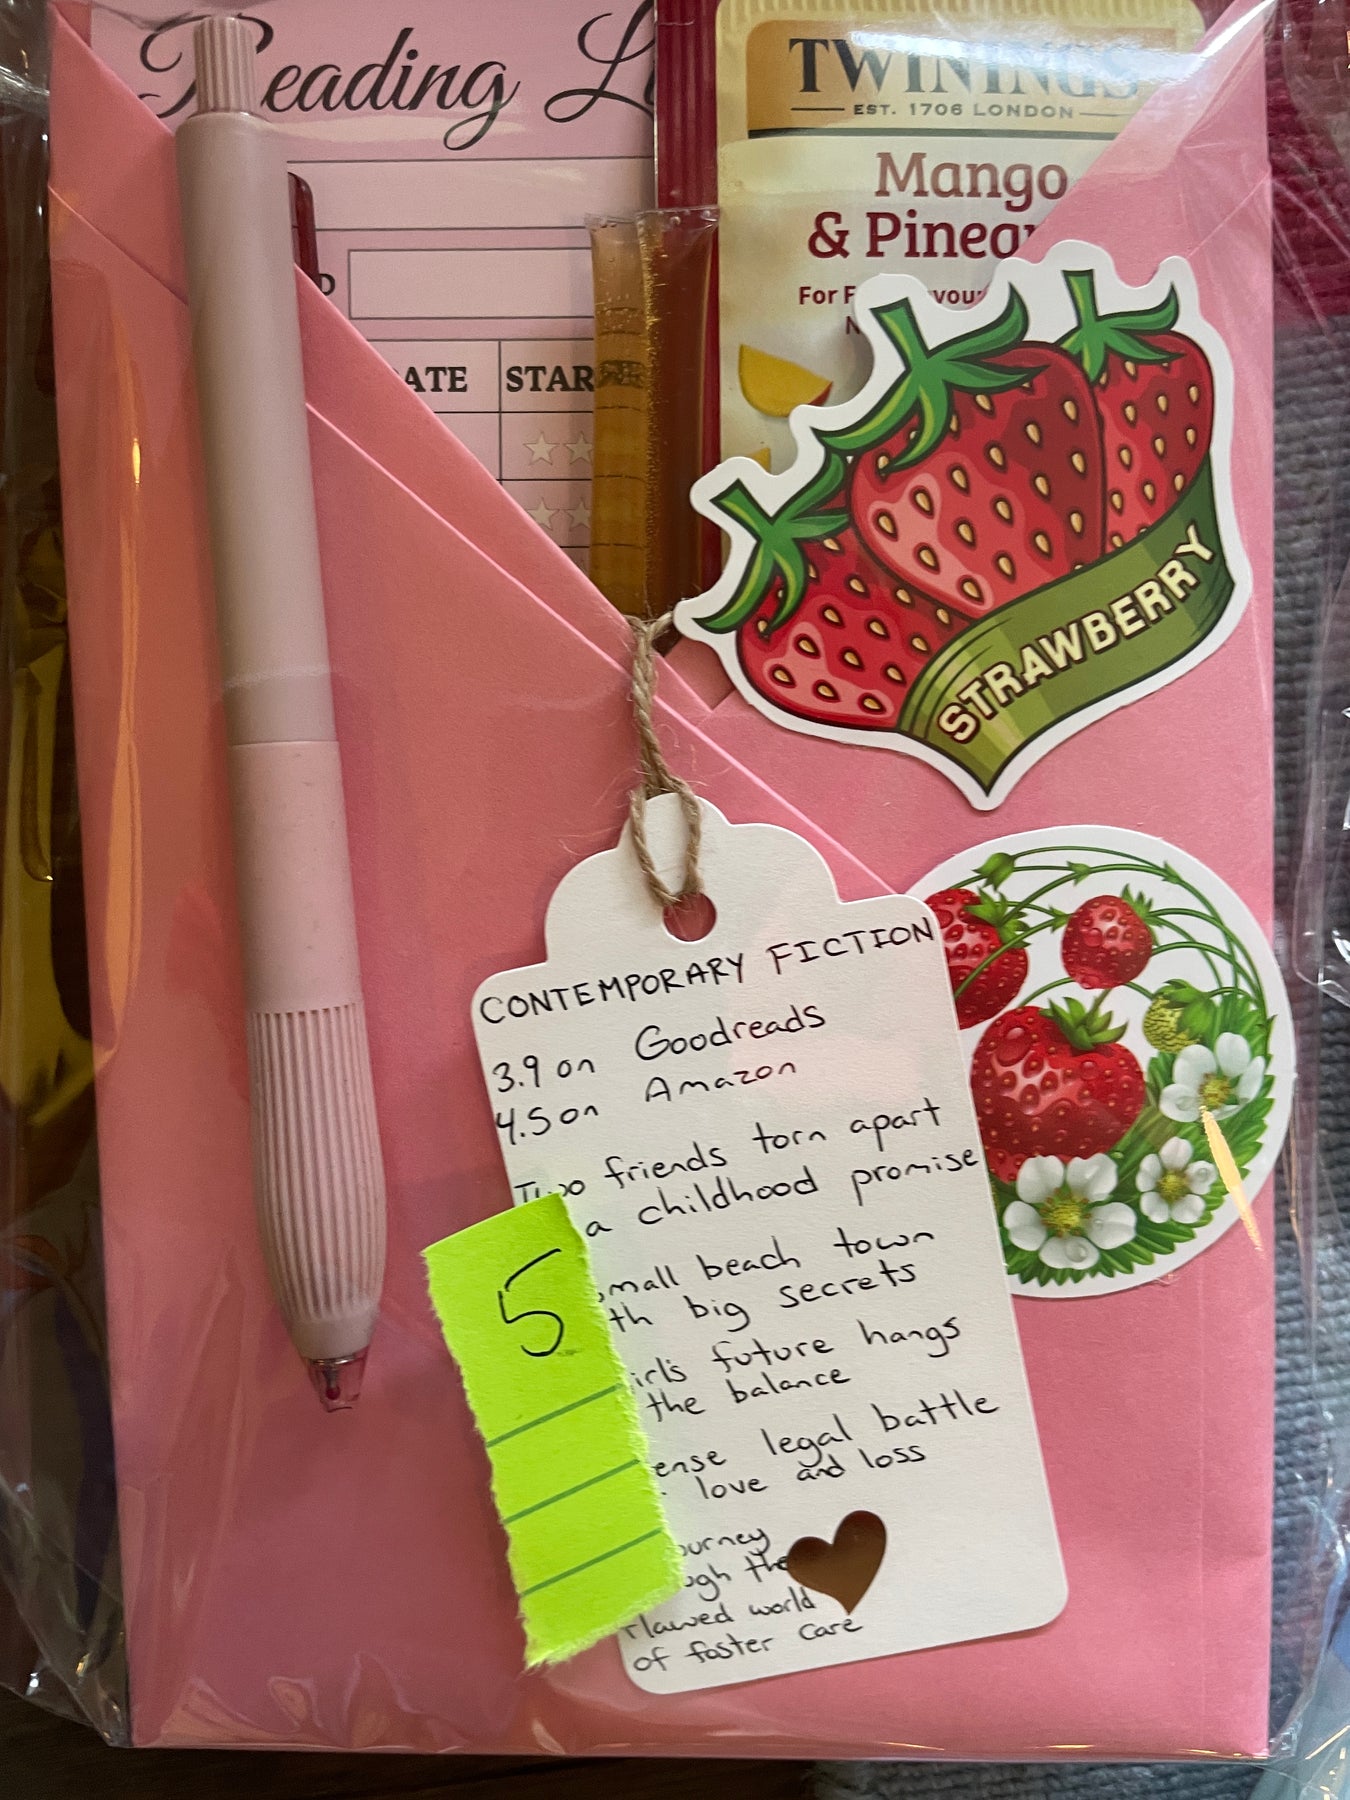 Reading
TWININGS
EST. 1706 LONDON
Mango
& Pineap
For F
STAR
STRAWBERRY
CONTEMPORARY FICTION
3.9 on Goodreads
4.5 on Amazon
Two friends torn apart
a childhood promise
small beach town
th big secrets
irl's future hangs
the balance
ense legal battle
love and loss
ourney
ugh the
flawed world
of foster care
5